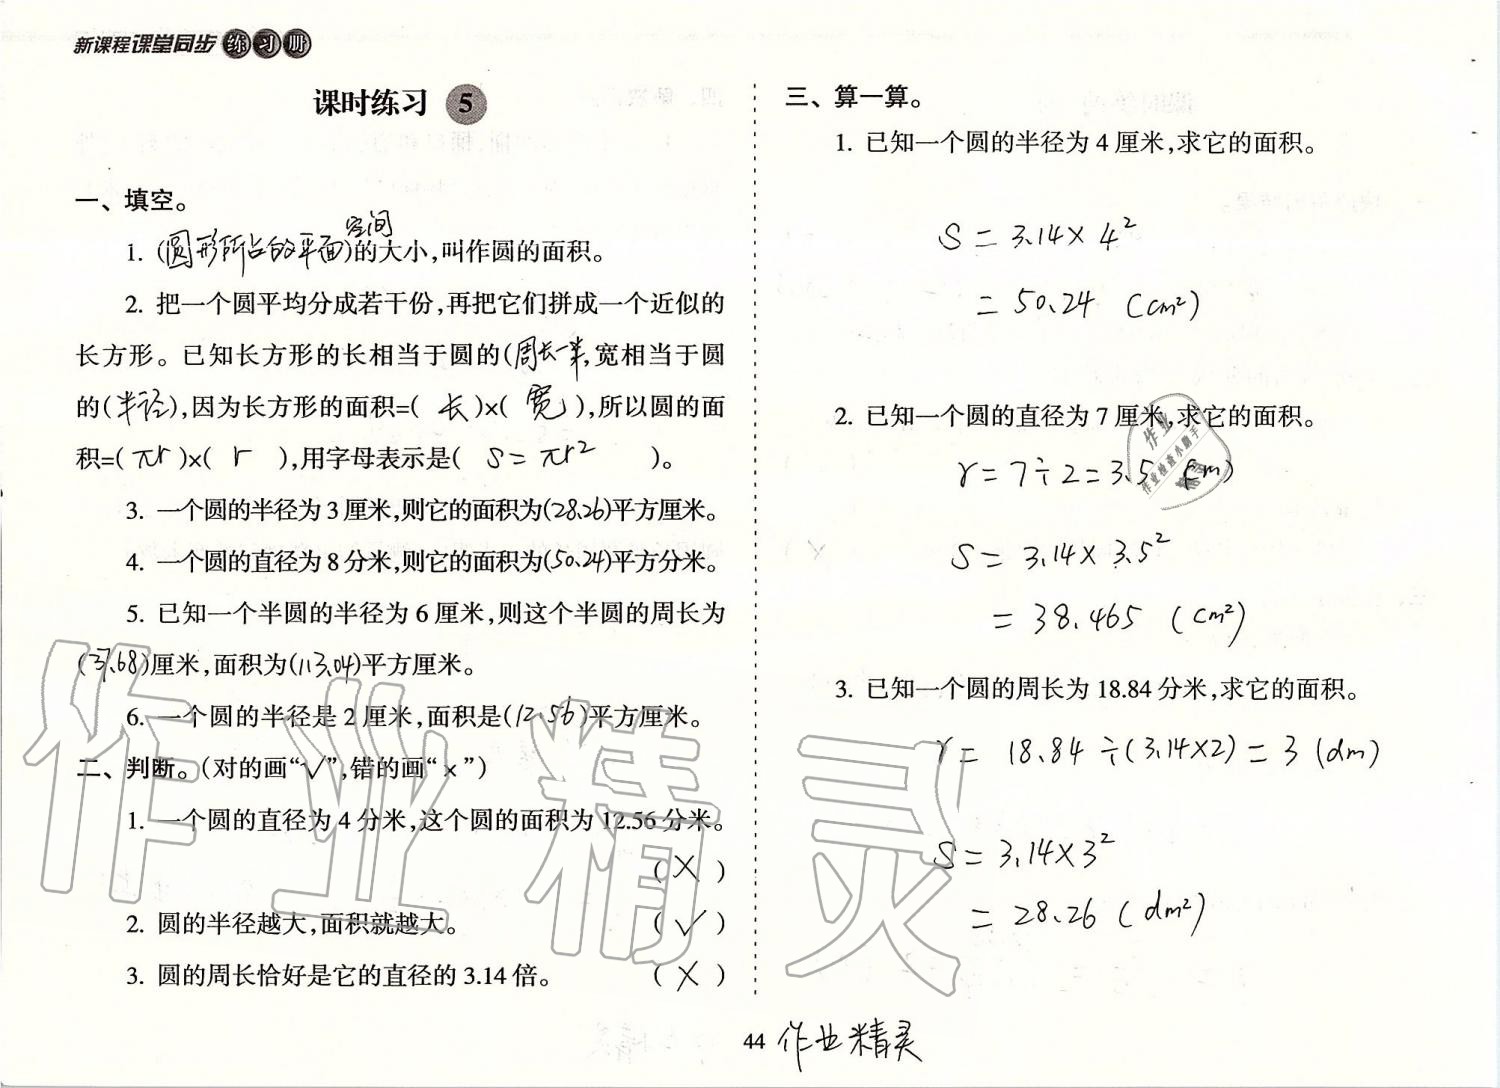 新课程课堂同步练习册
课时练习 5
一、填空。
1. (圆形所占的平面空间)的大小,叫作圆的面积。
2. 把一个圆平均分成若干份,再把它们拼成一个近似的
长方形。已知长方形的长相当于圆的(周长一半,宽相当于圆
的(半径),因为长方形的面积=( 长 )×( 宽 ),所以圆的面
积=( πr )×( r ),用字母表示是( S = πr² )。
3. 一个圆的半径为3厘米,则它的面积为(28.26)平方厘米。
4. 一个圆的直径为8分米,则它的面积为(50.24)平方分米。
5. 已知一个半圆的半径为6厘米,则这个半圆的周长为
(37.68)厘米,面积为(113.04)平方厘米。
6. 一个圆的半径是2厘米,面积是(12.56)平方厘米。
二、判断。(对的画“√”,错的画“×”)
1. 一个圆的直径为4分米,这个圆的面积为12.56分米。
( × )
2. 圆的半径越大,面积就越大。 ( √ )
3. 圆的周长恰好是它的直径的3.14倍。 ( × )
三、算一算。
1. 已知一个圆的半径为4厘米,求它的面积。
S = 3.14 × 4²
= 50.24 (cm²)
2. 已知一个圆的直径为7厘米,求它的面积。
r = 7÷2 = 3.5 (cm)
S = 3.14 × 3.5²
= 38.465 (cm²)
3. 已知一个圆的周长为18.84分米,求它的面积。
r = 18.84 ÷(3.14×2) = 3 (dm)
S = 3.14 × 3²
= 28.26 (dm²)
作业
作业检查小助手
作业精灵
44 作业精灵